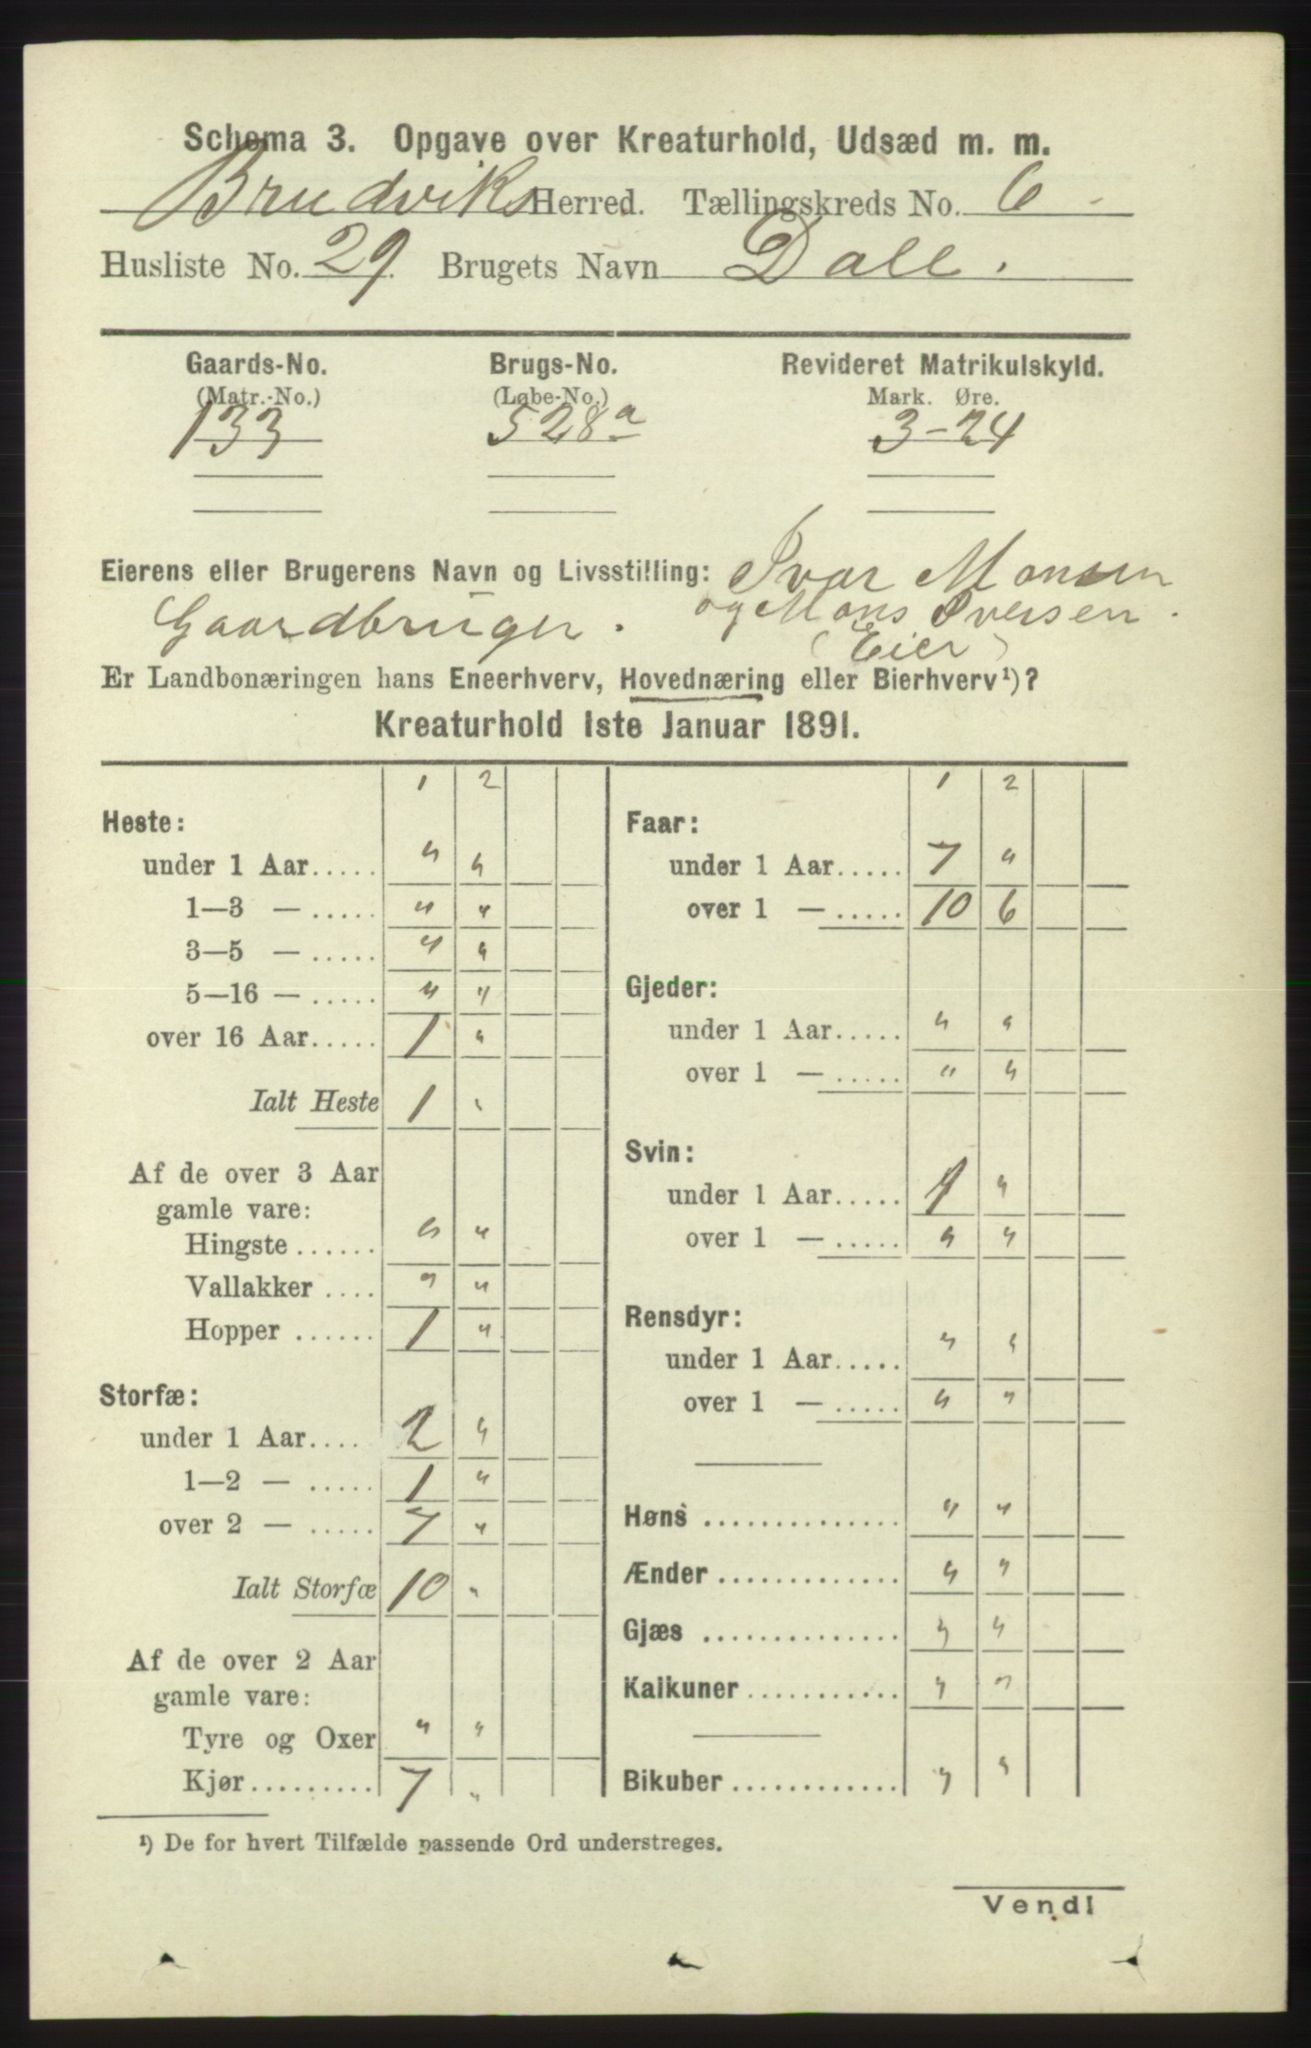 Schema 3. Opgave over Kreaturhold, Udsæd m. m.
Brudviks Herred. Tællingskreds No. 6
Husliste No. 29. Brugets Navn Dale.
Gaards-No. Brugs-No. Revideret Matrikulskyld.
(Matr.-No.) (Løbe-No.) Mark. Øre.
133 528a 3-24
Eierens eller Brugerens Navn og Livsstilling: Ivar Monsen
Gaardbruger. og Mons Iversen.
(Eier)
Er Landbonæringen hans Eneerhverv, Hovednæring eller Bierhverv¹)?
Kreaturhold 1ste Januar 1891.
1 2
Heste:
under 1 Aar..... " "
1—3 — ..... " "
3—5 — ..... " "
5—16 — ..... " "
over 16 Aar..... 1 "
Ialt Heste 1 "
Af de over 3 Aar
gamle vare:
Hingste ...... " "
Vallakker .... " "
Hopper ...... 1 "
Storfæ:
under 1 Aar.... 2 "
1—2 — ..... 1 "
over 2 — ..... 7 "
Ialt Storfæ 10 "
Af de over 2 Aar
gamle vare:
Tyre og Oxer " "
Kjør......... 7 "
1 2
Faar:
under 1 Aar..... 7 "
over 1 — ..... 10 6
Gjeder:
under 1 Aar..... " "
over 1 — ..... " "
Svin:
under 1 Aar..... 1 "
over 1 — ..... " "
Rensdyr:
under 1 Aar..... " "
over 1 — ..... " "
Høns .............. " "
Ænder ............. " "
Gjæs .............. " "
Kalkuner........... " "
Bikuber ............ " "
¹) De for hvert Tilfælde passende Ord understreges.
Vend!